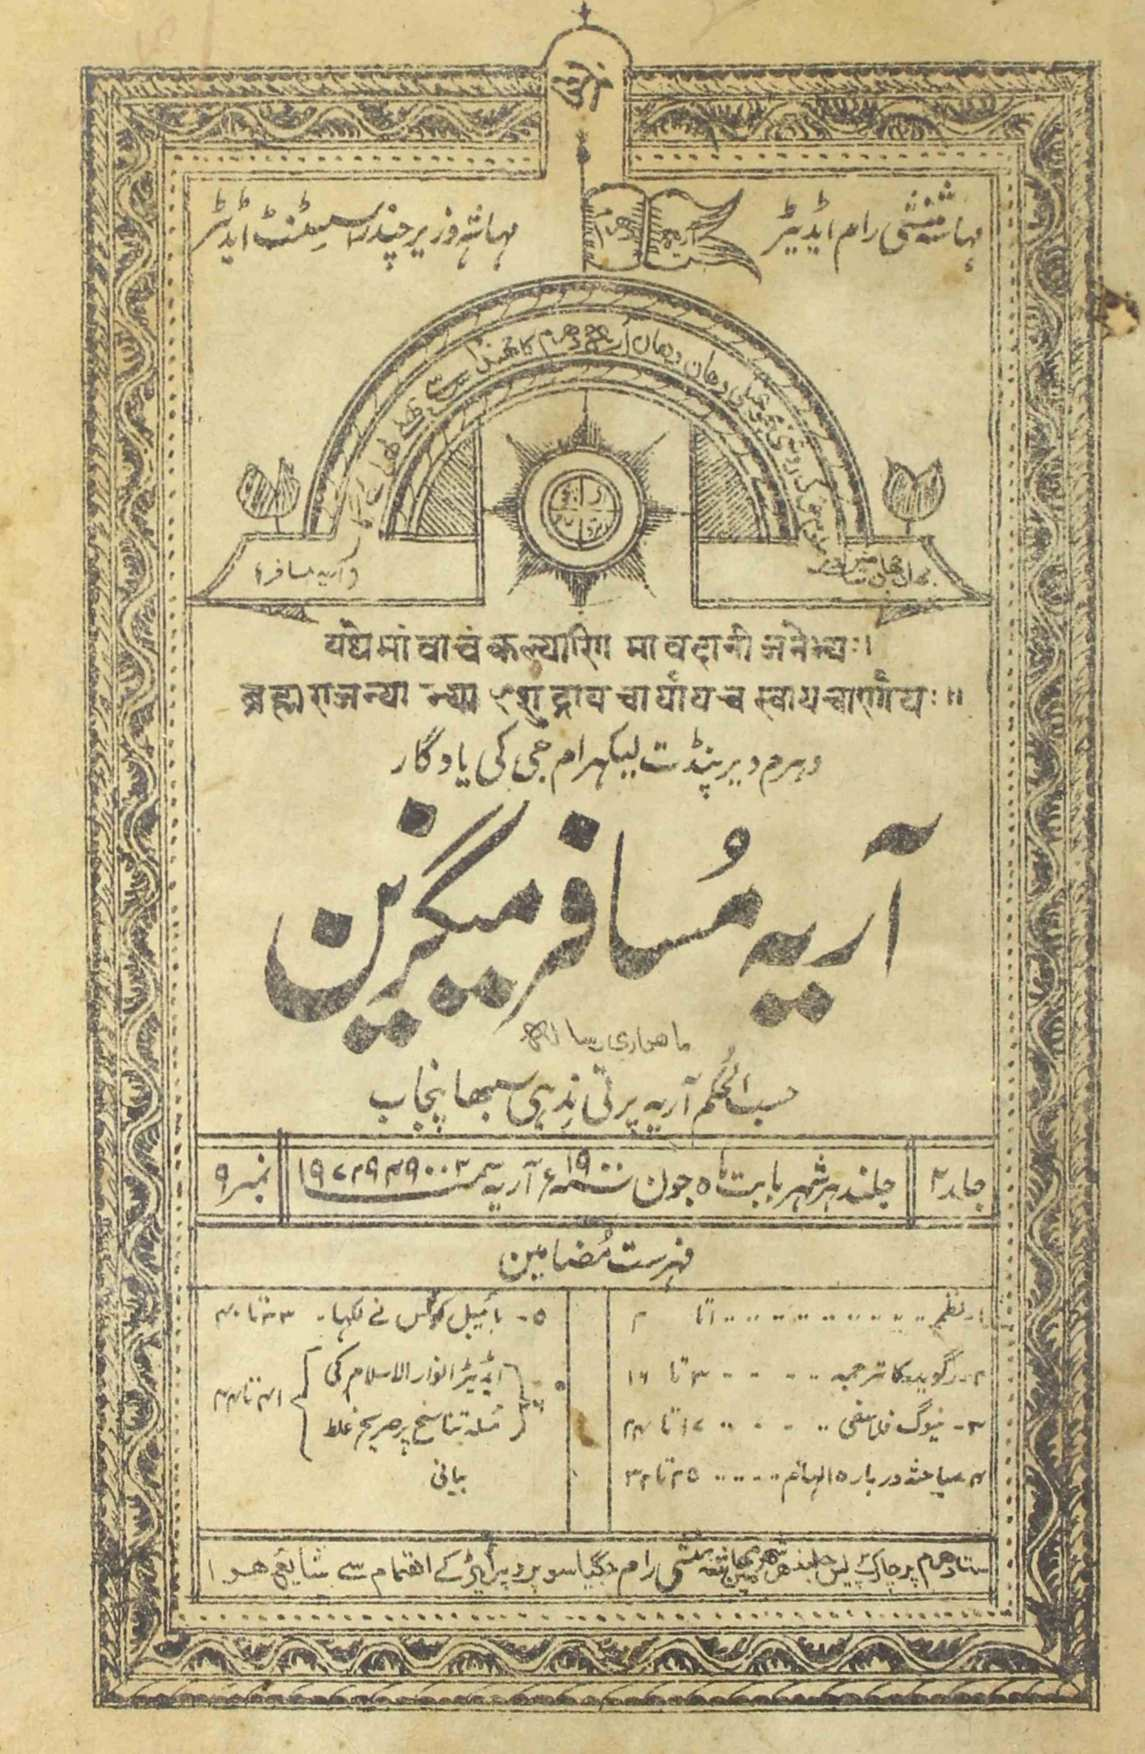 ओं
مہاشہ منشی رام ایڈیٹر
مہاشہ وزیر چندر اسسٹنٹ ایڈیٹر
آریہ دھرم
آریہ دھرم کا جھنڈا
آریہ مسافر
यथेमां वाचं कल्याणि मावदानी जनेभ्यः।
ब्रह्म राजन्या भ्या ೱशुद्राय चार्याय च स्वाय चार्णाय ः॥
دہرم ویر پنڈت لیکہرام جی کی یادگار
آریہ مُسافر میگزین
ماھواری رسالہ
حسب الحُکم آریہ پرتی نِدہی سبھا پنجاب
جلد ۲
جلندہر شہر بابت ماہ جون سنہ ۱۹۰۰ء آریہ سمت ۱۹۷۲۹۴۹۰۰۲
نمبر ۹
فہرست مُضامین
۱۔ نظم ۱ تا ۲
۲۔ رگوید کا ترجمہ ۳ تا ۱۶
۳۔ نیوگ فلاسفی ۱۷ تا ۲۴
۴۔ مباحثہ دربارہ الہام ۲۵ تا ۳۲
۵۔ بائیبل کو کس نے لکہا۔ ۳۳ تا ۴۰
۶۔ ایڈیٹر انوار الاسلام کی ۴۱ تا ۴۴
مسئلہ تناسخ پر صریح غلط
بیانی
ست دھرم پرچارک پریس جلندھر شہر میں مہاشہ منشی رام جگیاسو پروپرائیٹر کے اھتمام سے شائع ھوا